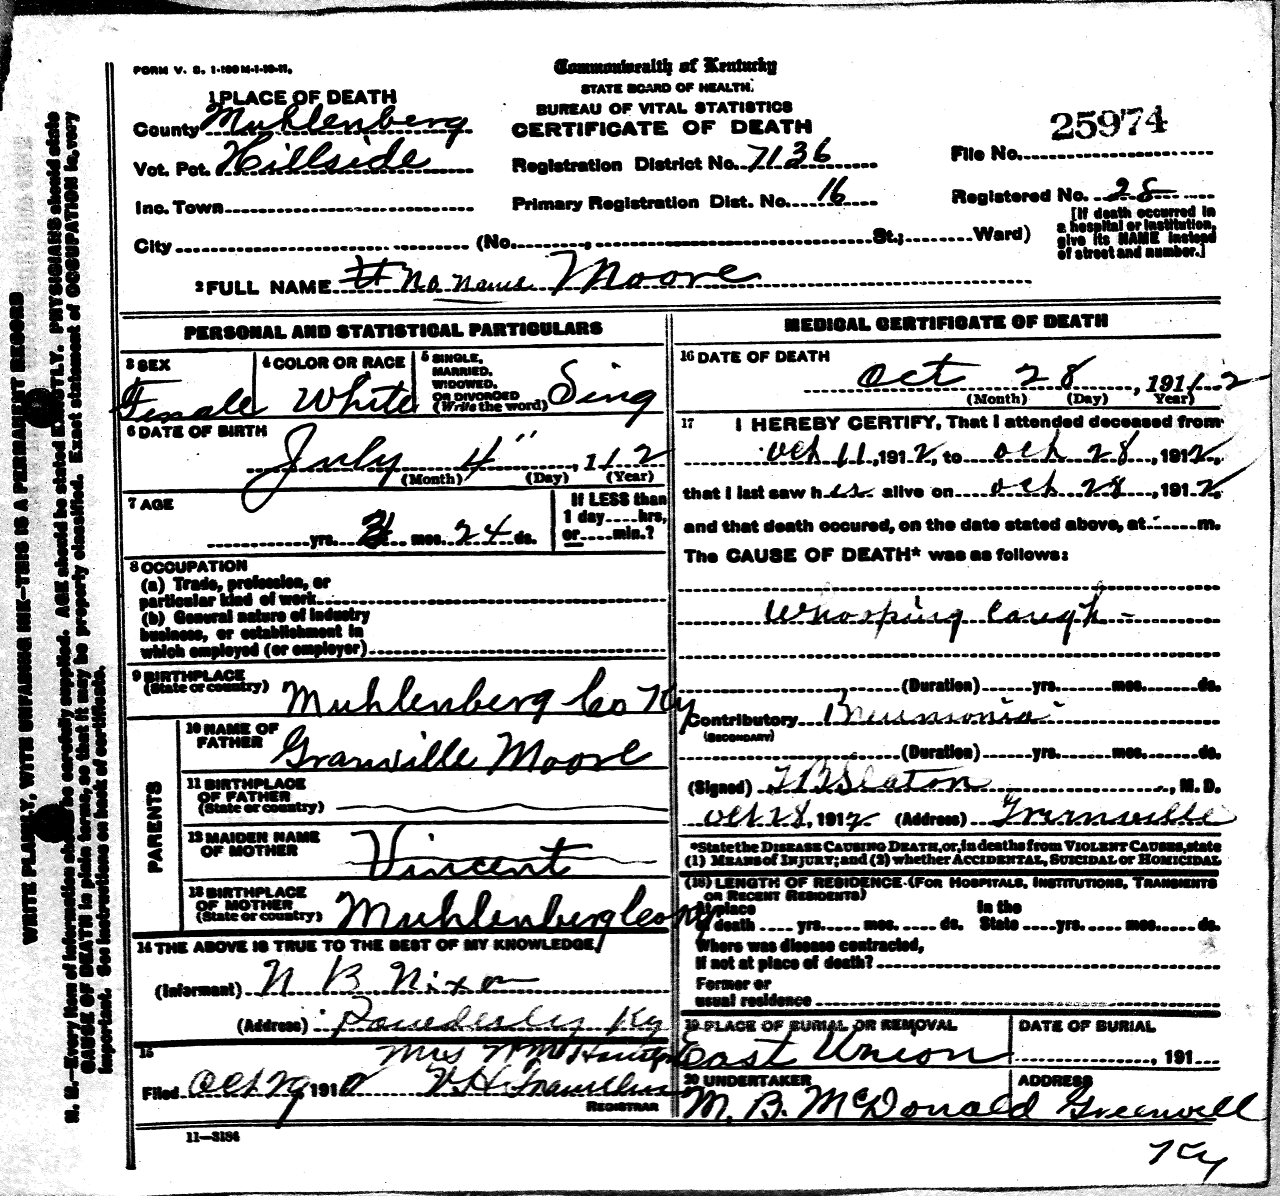 FORM V. S. 1-100M-1-10-11.
Commonwealth of Kentucky
STATE BOARD OF HEALTH.
BUREAU OF VITAL STATISTICS
CERTIFICATE OF DEATH
1 PLACE OF DEATH
County Muhlenberg
Vot. Pct. Hillside
Inc. Town
Registration District No. 7136
Primary Registration Dist. No. 16
25974
File No.
Registered No. 28
[If death occurred in a hospital or institution, give its NAME instead of street and number.]
City (No. , St.; Ward)
2 FULL NAME no name Moore
PERSONAL AND STATISTICAL PARTICULARS
3 SEX Female
4 COLOR OR RACE White
5 SINGLE, MARRIED, WIDOWED, OR DIVORCED (Write the word) Sing
6 DATE OF BIRTH
July 4" , 1912
(Month) (Day) (Year)
7 AGE
yrs. 3 mos. 24 ds.
If LESS than 1 day....hrs, or....min.?
8 OCCUPATION
(a) Trade, profession, or
particular kind of work
(b) General nature of industry
business, or establishment in
which employed (or employer)
9 BIRTHPLACE
(State or country) Muhlenberg Co Ky
PARENTS
10 NAME OF FATHER Granville Moore
11 BIRTHPLACE OF FATHER (State or country)
12 MAIDEN NAME OF MOTHER Vincent
13 BIRTHPLACE OF MOTHER (State or country) Muhlenberg Co Ky
14 THE ABOVE IS TRUE TO THE BEST OF MY KNOWLEDGE
(Informant) N B Nixon
(Address) Ky
15
Mrs Wm
Filed Oct 29 1912
REGISTRAR
11—3184
MEDICAL CERTIFICATE OF DEATH
16 DATE OF DEATH
Oct 28 , 1912
(Month) (Day) Year)
17 I HEREBY CERTIFY, That I attended deceased from
Oct 11, 1912, to Oct 28, 1912,
that I last saw her alive on Oct 28, 1912,
and that death occured, on the date stated above, at m.
The CAUSE OF DEATH* was as follows:
Whooping Cough
(Duration) yrs. mos. ds.
Contributory Pneumonia
(SECONDARY)
(Duration) yrs. mos. ds.
(Signed) T B Slaton, M. D.
Oct 28, 1912 (Address) Greenville
*State the DISEASE CAUSING DEATH, or, in deaths from VIOLENT CAUSES, state
(1) MEANS of INJURY; and (2) whether ACCIDENTAL, SUICIDAL or HOMICIDAL
(18) LENGTH OF RESIDENCE (FOR HOSPITALS, INSTITUTIONS, TRANSIENTS
OR RECENT RESIDENTS)
At place of death yrs. mos. ds. In the State yrs. mos. ds.
Where was disease contracted,
If not at place of death?
Former or
usual residence
19 PLACE OF BURIAL OR REMOVAL
East Union
DATE OF BURIAL
, 191
20 UNDERTAKER
M. B. McDonald
ADDRESS
Greenvell
Ky
WRITE PLAINLY, WITH UNFADING INK—THIS IS A PERMANENT RECORD
N. B.—Every item of information should be carefully supplied. AGE should be stated EXACTLY. PHYSICIANS should state
CAUSE OF DEATH in plain terms, so that it may be properly classified. Exact statement of OCCUPATION is very
important. See instructions on back of certificate.